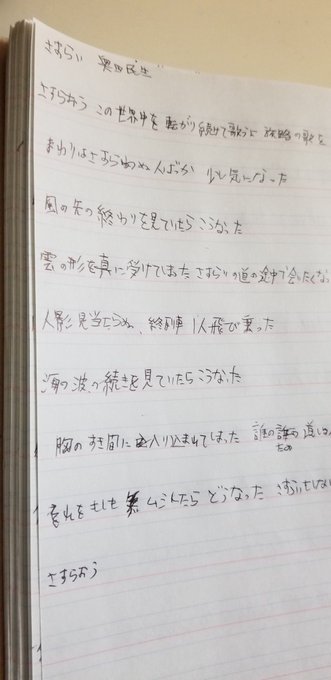 さすらい 奥田民生
さすらおう この世界中を 転がり続けて歌うよ 旅路の歌を
まわりはさすらわぬ人ばっか 少し気になった
風の先の終わりを見ていたらこうなった
雲の形を真に受けてしまった さすらいの道の途中で会いたくなっ
人影見当たらぬ 終列車 1人飛び乗った
海の波の続きを見ていたらこうなった
胸のすき間に入り込まれてしまった 誰の
ための 道しる
ムシしたらどうなった さすらいもしない
さすらおう